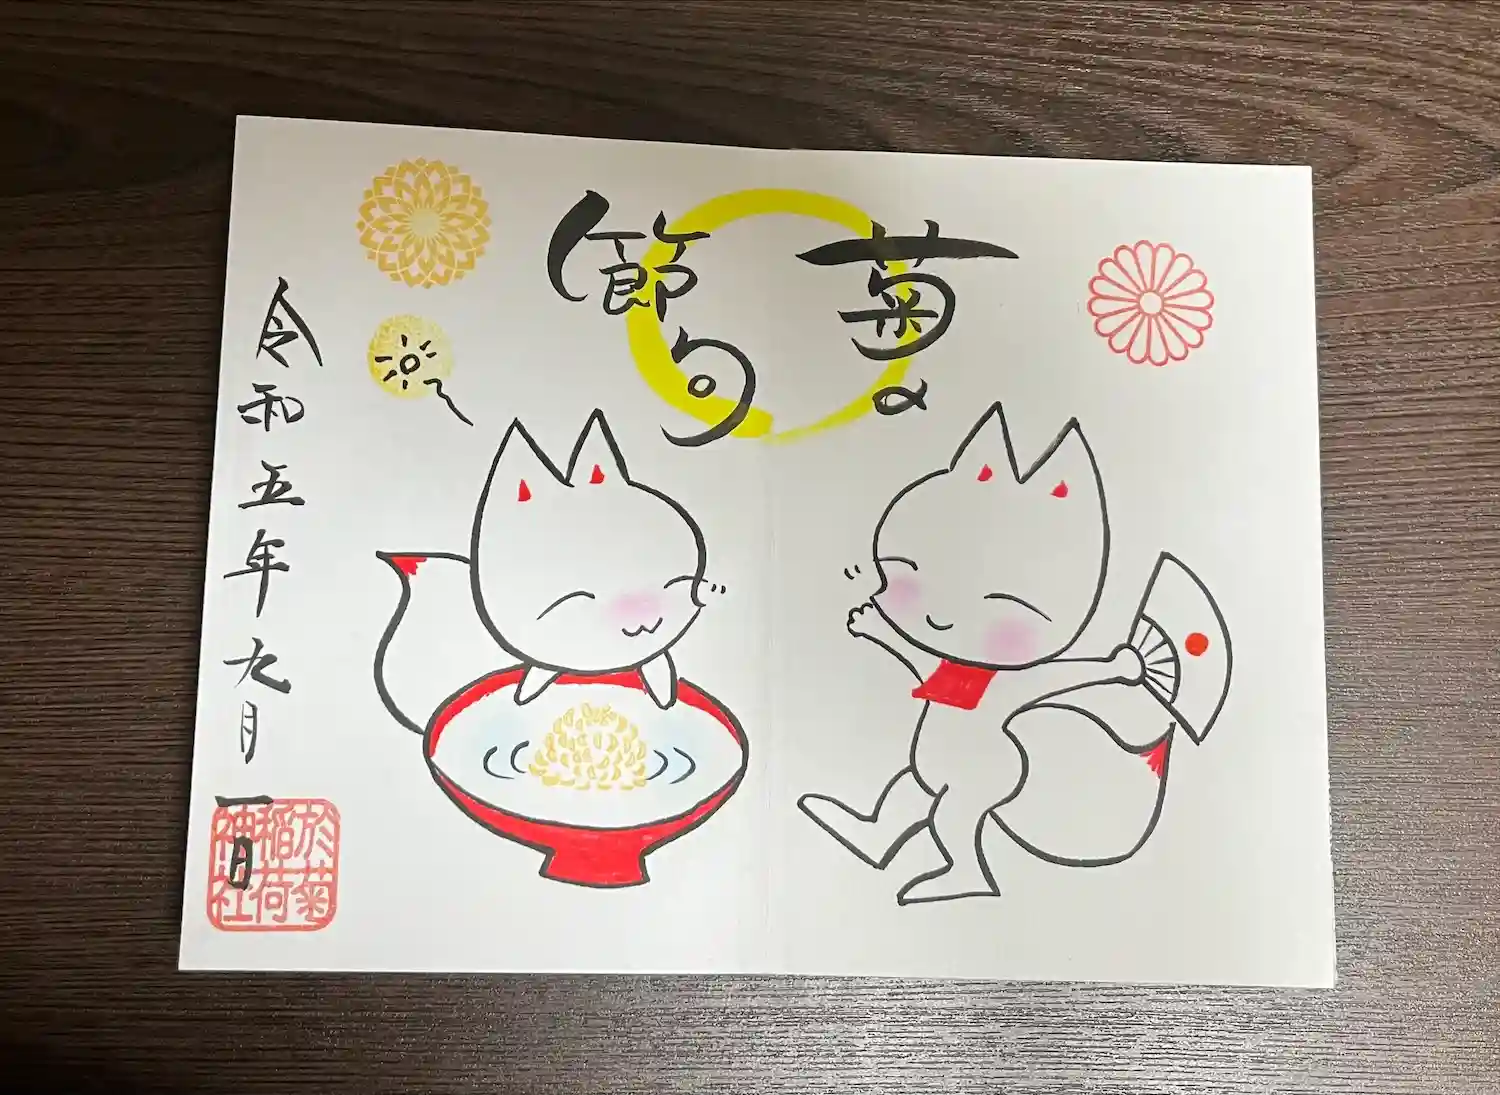 菊の
節句
令和五年九月一日
於菊
稲荷
神社